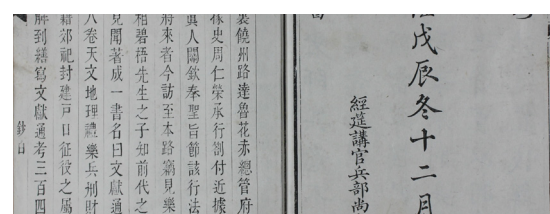 戊辰冬十二月
經筵講官兵部尚
饒州路達魯花赤總管府
史周仁榮承行劄付近據
真人闕欽奉聖旨節該行法
將來者今訪至本路竊見樂
相碧梧先生之子知前代之
見聞著成一書名曰文獻通
八卷天文地理禮樂兵刑財
籍郊祀封建戸口征役之屬
解到繕寫文獻通考三百四
鈔白